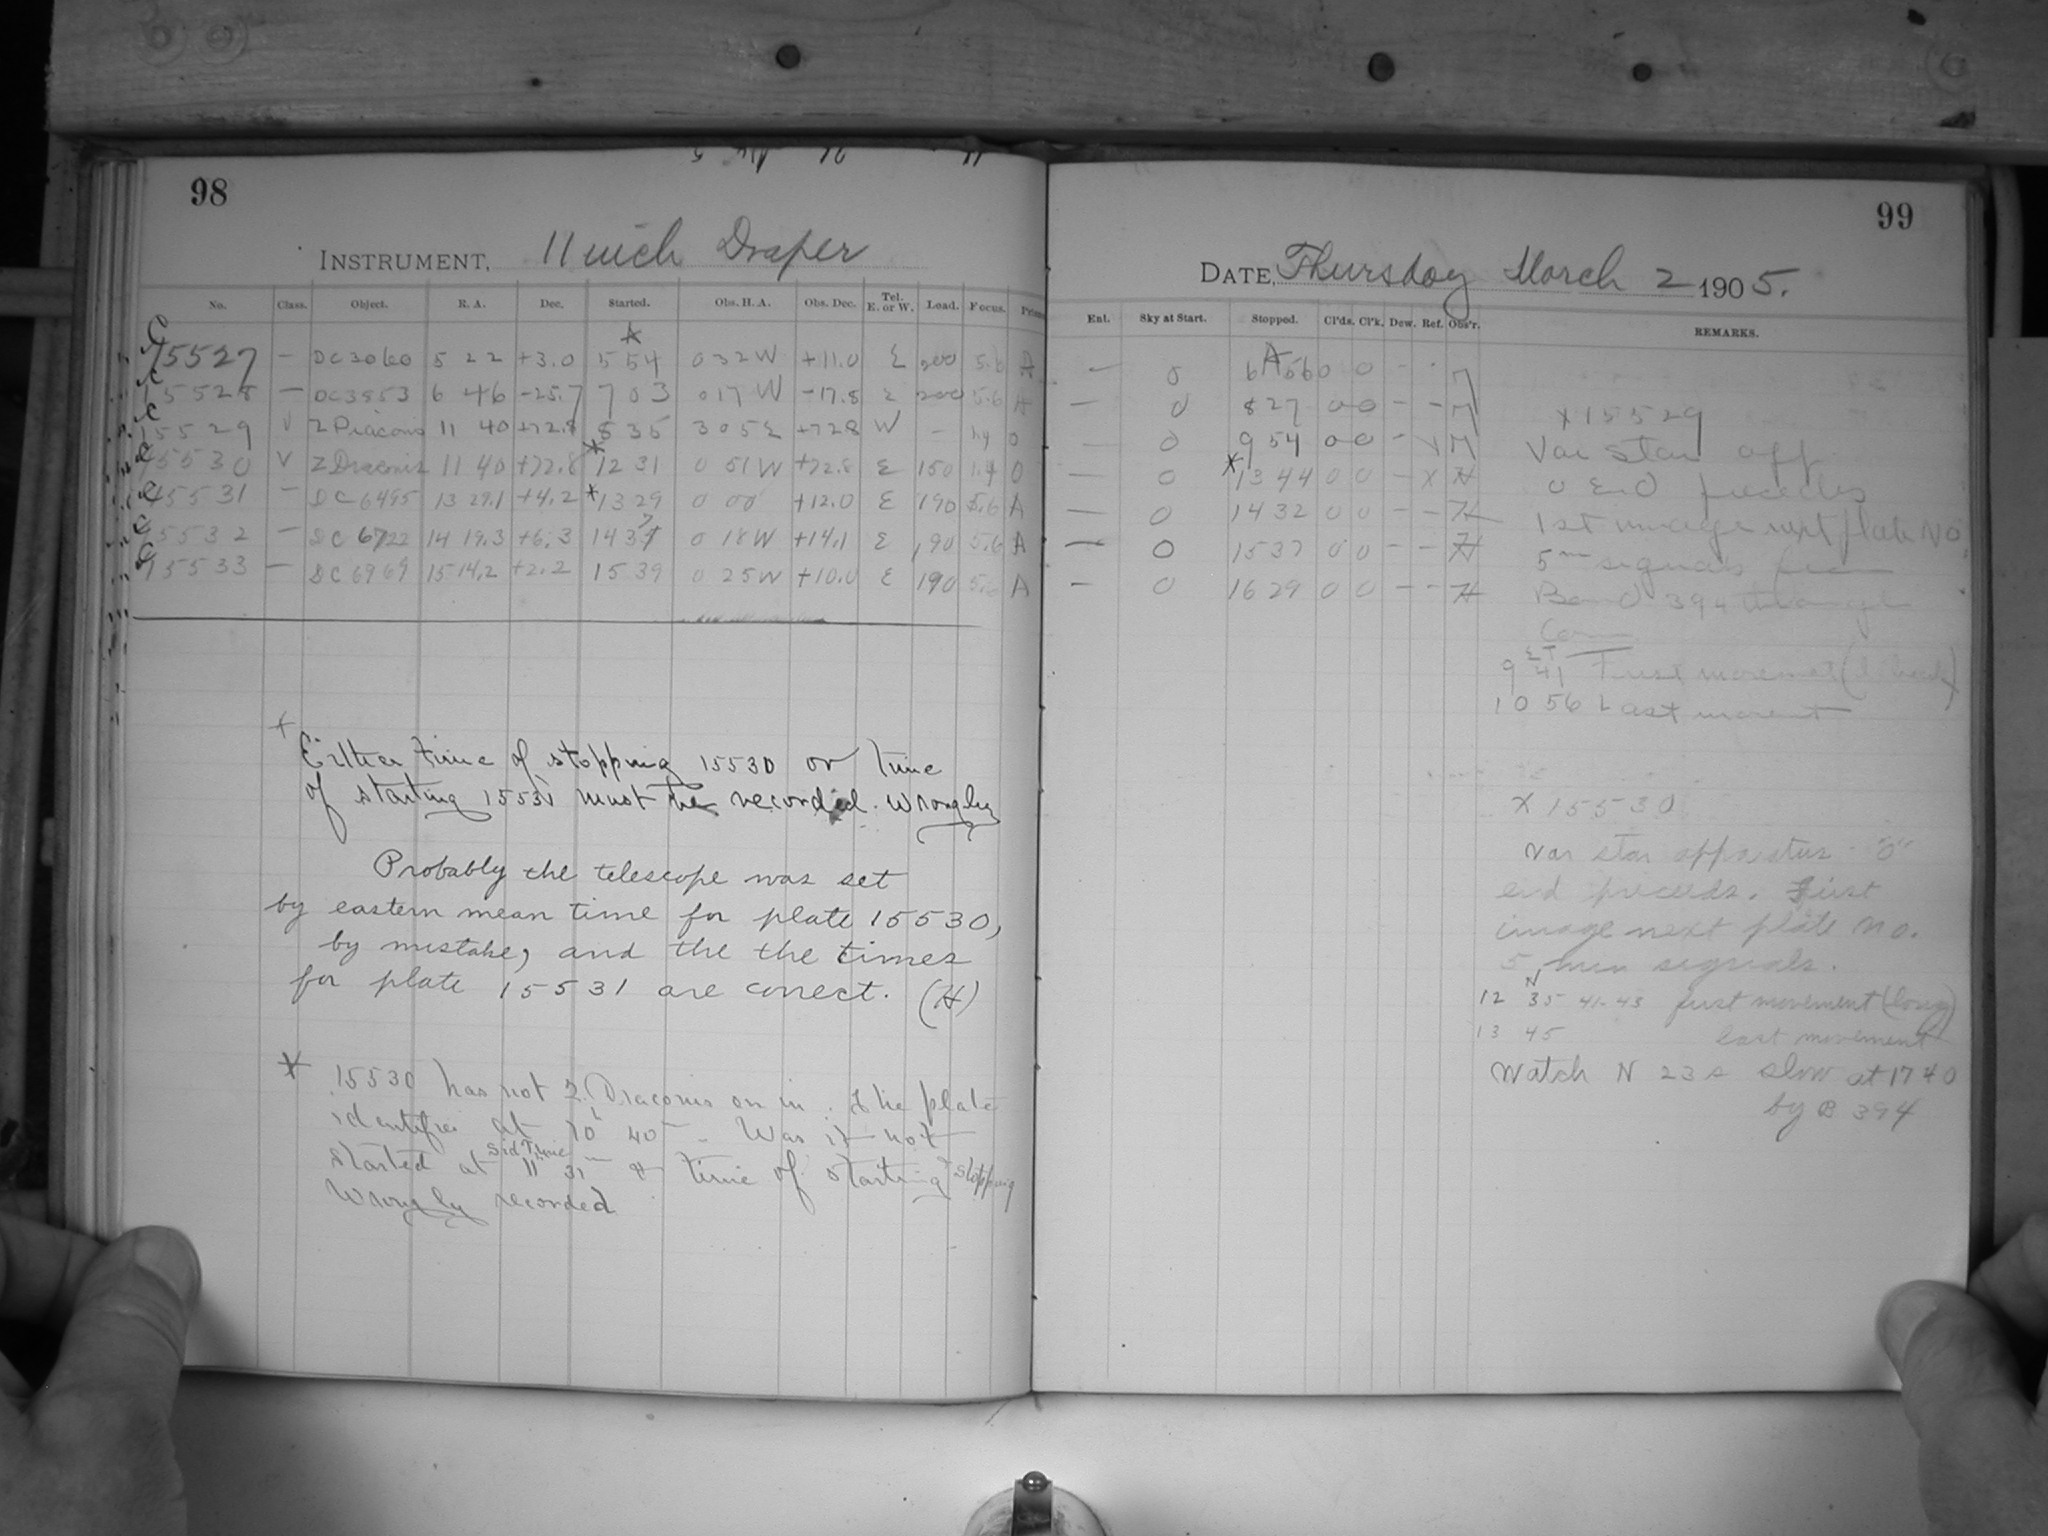 98
INSTRUMENT, 11 inch Draper
No. Class. Object. R. A. Dec. Started. Obs. H. A. Obs. Dec. Tel. E. or W. Load. Focus.
C 15527 — DC 3060 5 22 +3.0 5 54 0 32 W +11.0 E 200 5.6 A
C 15528 — DC 3553 6 46 -25.7 7 03 0 17 W -17.8 E 200 5.6 A
C 15529 V 11 40 +72.8 8 35 3 05 E +72.8 W - 0
C 15530 V Z Draconis 11 40 +72.8 * 12 31 0 51 W +72.8 E 150 1.4 0
C 15531 — DC 6495 13 29.1 +4.2 * 13 29 0 00 +12.0 E 190 5.6 A
C 15532 — DC 6722 14 19.3 +6.3 14 37 0 18 W +14.1 E 190 5.6 A
C 15533 — DC 6969 15 14.2 +2.2 15 39 0 25 W +10.0 E 190 5.6 A
Either time of stopping 15530 or time
of starting 15531 must be recorded wrongly
Probably the telescope was set
by eastern mean time for plate 15530,
by mistake, and the the times
for plate 15531 are correct. (H)
* 15530 has not Z Draconis on it. The plate
identifies at 10h 40m. Was it not
started at Sid Time 11h 31m & time of starting & stopping
wrongly recorded
99
DATE, Thursday March 2 1905.
Ent. Sky at Start. Stopped. Cl'ds. Cl'k. Dew. Ref. Obs'r. REMARKS.
— 0 6 56 0 0 -
— 0 8 27 0 0 - -
— 0 9 54 0 0 -
— 0 * 13 44 0 0 - X H
— 0 14 32 0 0 - - H
— 0 15 37 0 0 - - H
— 0 16 29 0 0 - - H
X 15529
Var Star app
0 End precedes
1st image next plate No
5m signals from
Bond 394 through
9 41 First movement
10 56 Last
X 15530
Var star apparatus "0"
end precedes. First
image next plate no.
5 min signals.
12 35 41-43 first movement (long)
13 45 last movement
Watch N 23 s slow at 17 40
by B 394